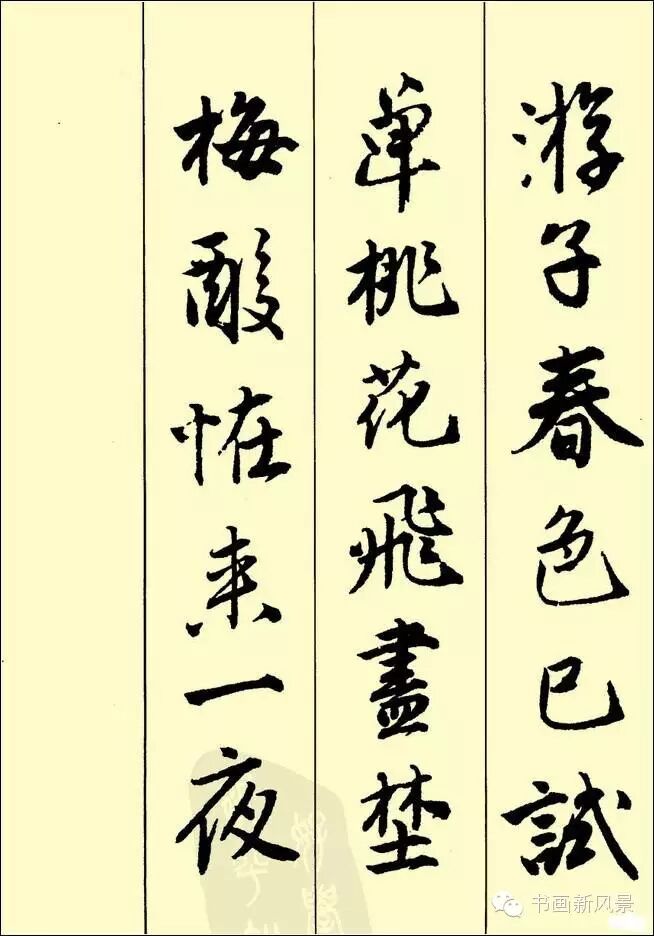 游子春色已試
單桃花飛盡埜
梅酸恠来一夜
书画新风景